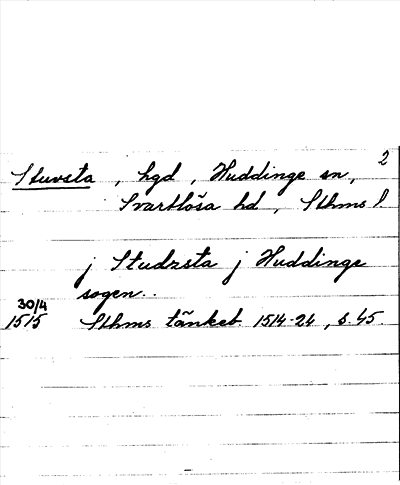 2
Stuvsta, hgd, Huddinge sn,
Svartlösa hd, Sthms l.
j Studzsta j Huddinge
sogen.
30/4
1515 Sthms tänkeb. 1514-24, s. 45.